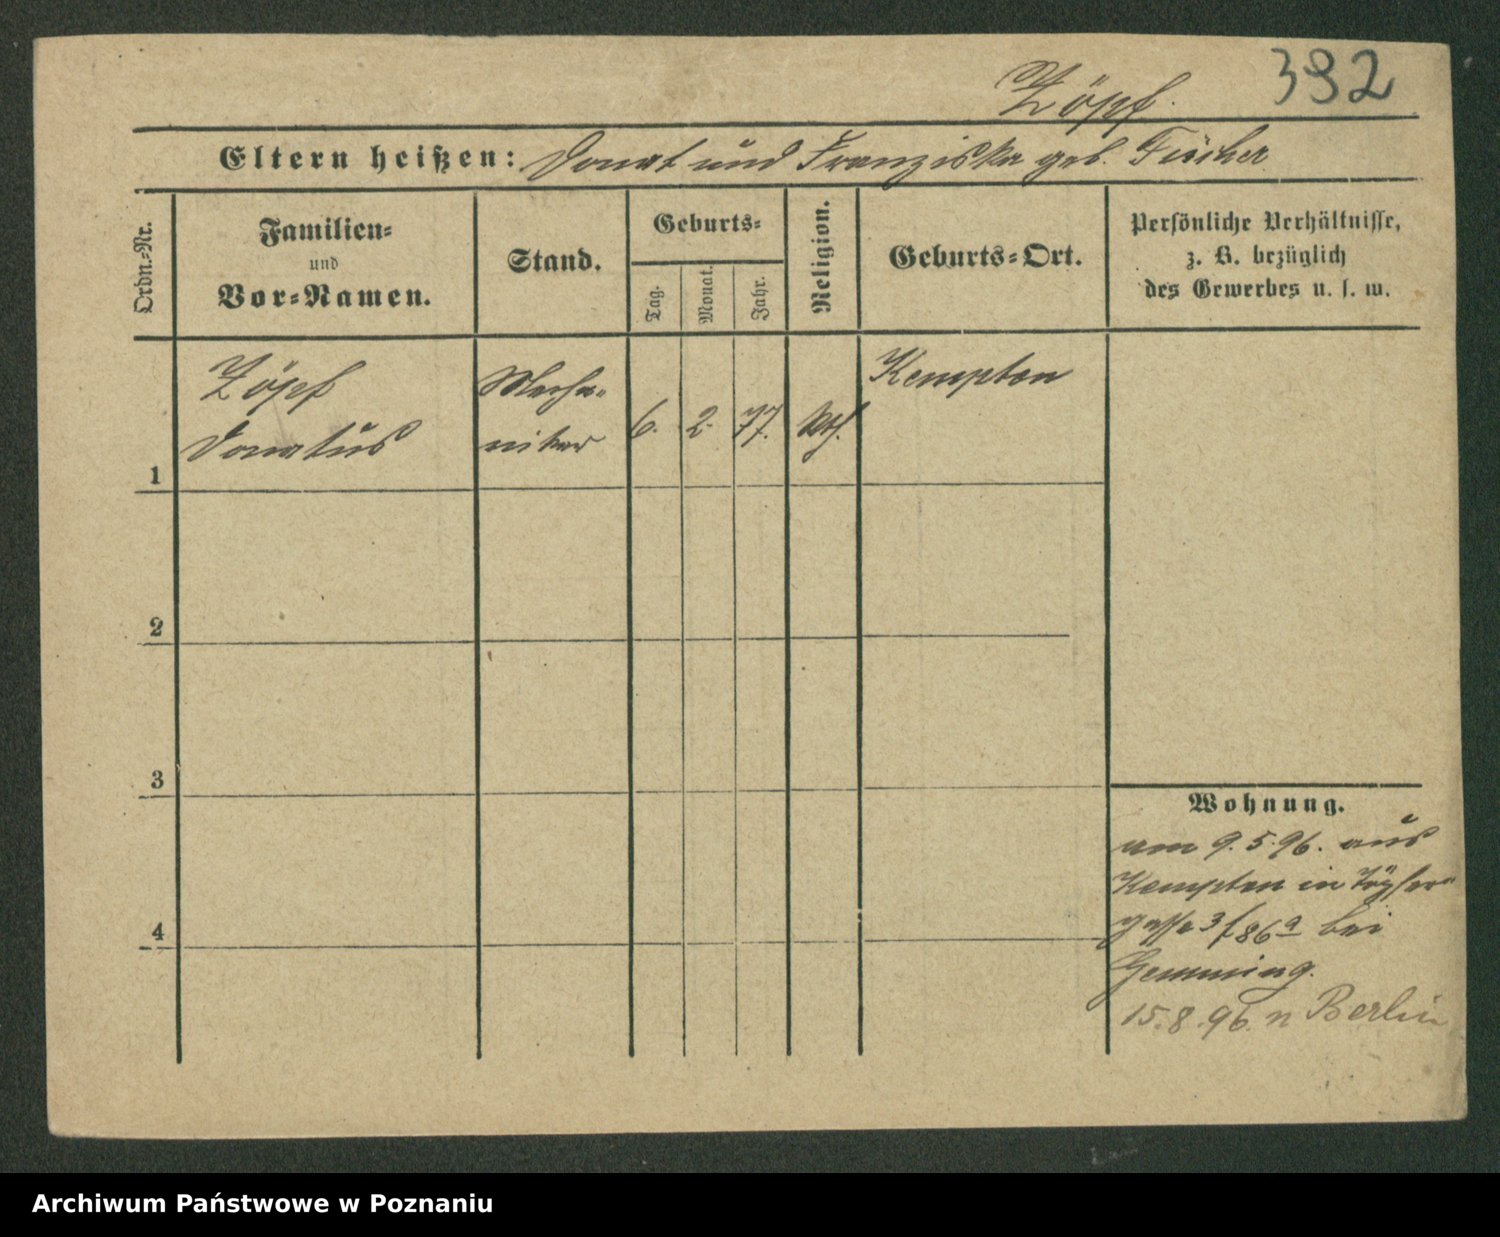 392
Zöpf.
Eltern heißen: Donat und Franziska geb. Fischer
Ordn.-Nr.
Familien-
und
Vor-Namen.
Stand.
Geburts-
Tag.
Monat.
Jahr.
Religion.
Geburts-Ort.
Persönliche Verhältnisse,
z. B. bezüglich
des Gewerbes u. s. w.
1
Zöpf
Donatus
Mecha-
niker
6. 2. 77. kth.
Kempten
2
3
4
Wohnung.
am 9.5.96. aus
Kempten in Töpfer-
gasse 3/86a bei
Gemming.
15.8.96. n Berlin
Archiwum Państwowe w Poznaniu